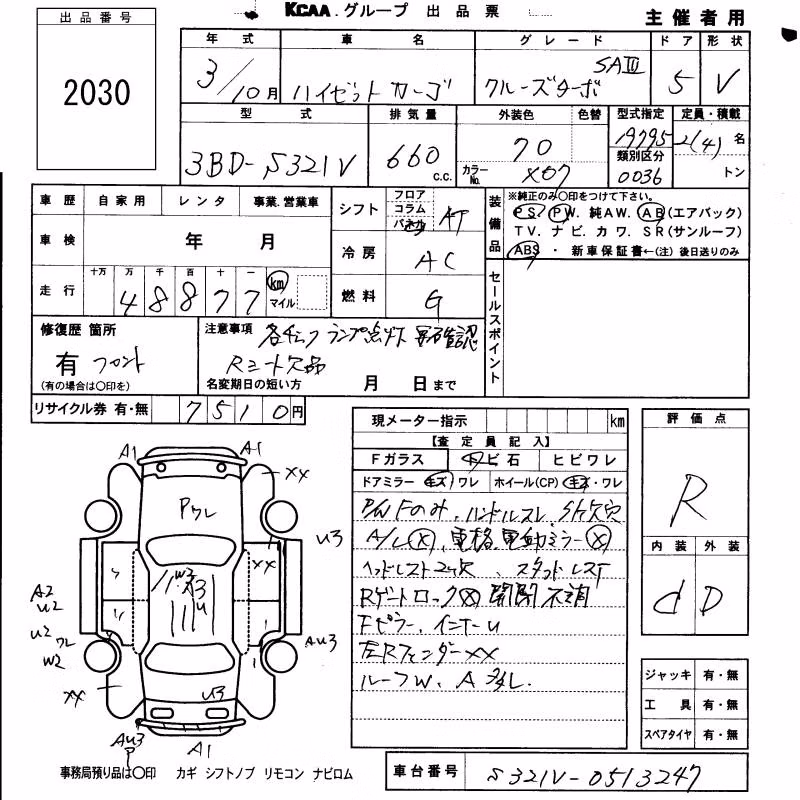 KCAA グループ 出品票
主催者用
出品番号
2030
年式 車名 グレード ドア 形状
3/10月 ハイゼットカーゴ クルーズターボ SAIII 5 V
型式 排気量 外装色 色替 型式指定 定員・積載
3BD-S321V 660 c.c. 70 カラーNo. X07 19795 2(4)名
類別区分
0036 トン
車歴 自家用 レンタ 事業.営業車
車検 年 月
走行 十万 万 千 百 十 一
48877 km マイル
シフト フロア コラム パネル AT
冷房 AC
燃料 G
装備品
※純正のみ〇印をつけて下さい。
PS. PW. 純AW. AB(エアバック)
TV. ナビ. カワ. SR(サンルーフ)
ABS ・ 新車保証書←(注)後日送りのみ
セールスポイント
修復歴 箇所
有 フロント
(有の場合は〇印を)
注意事項 各チェックランプ点灯 要確認
Rシート欠品
名変期日の短い方 月 日まで
リサイクル券 有・無 7510円
現メーター指示 km
【査定員記入】
Fガラス 飛石 ヒビワレ
ドアミラー キズ ワレ ホイール(CP) キズ・ワレ
P/W Fのみ、ハンドルスレ、
A/L(X)、電格、電動ミラー(X)
ヘッドレスト2ヶ欠、
Rゲートロック(X) 開閉不調
Fピラー、インナーU
左RフェンダーXX
ルーフW、A
評価点
R
内装 外装
d D
A1 A1
XX
Pワレ
U3
XX
W2
U
A2
U2
U2 ワレ
W2
AU3
XX
U3
AU3
P
A1
ジャッキ 有・無
工具 有・無
スペアタイヤ 有・無
事務局預り品は〇印 カギ シフトノブ リモコン ナビロム
車台番号 S321V-0513247